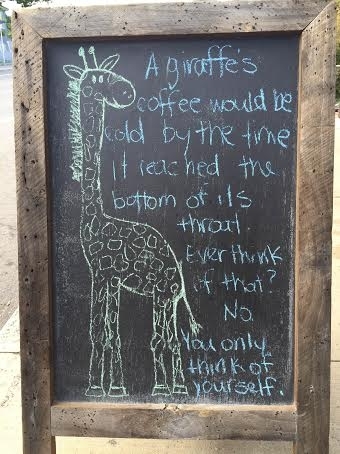 A giraffe's
coffee would be
cold by the time
it reached the
bottom of its
throat.
Ever think
of that?
No.
You only
think of
yourself.